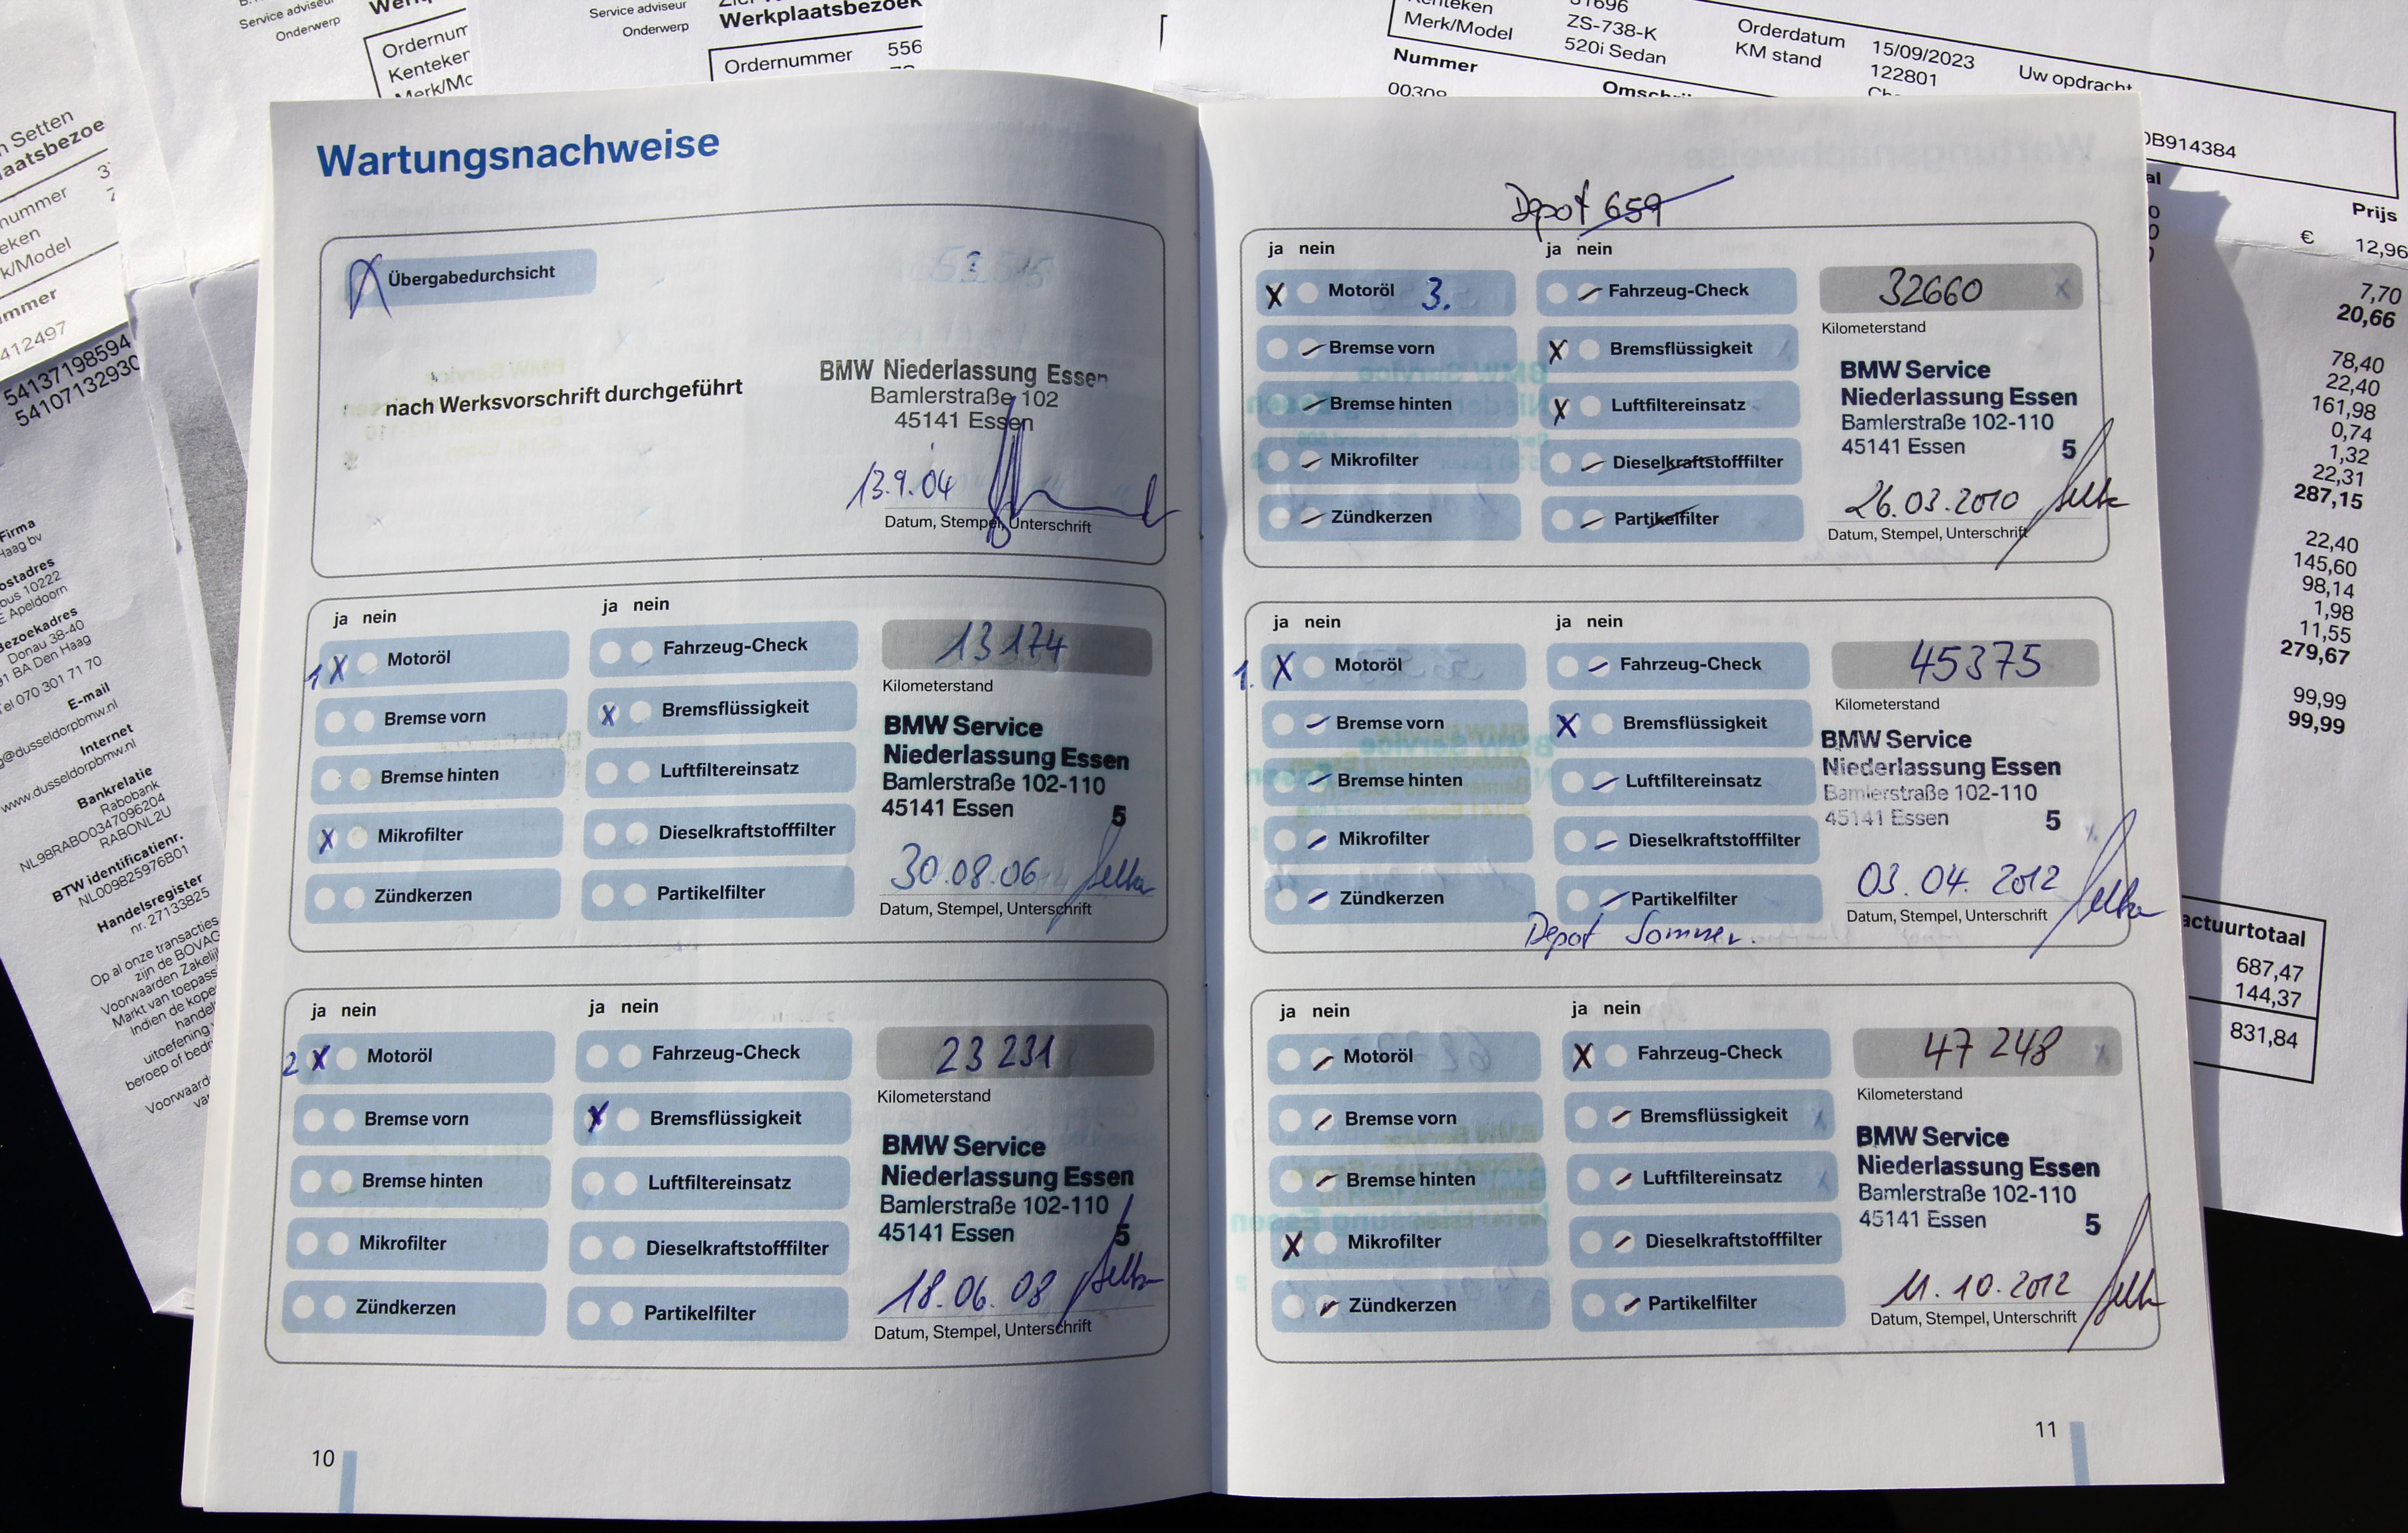 Service adviseur
Onderwerp
Ordernum
Kenteker
Merk/Mc
Service adviseur
Onderwerp
Werkplaatsbezoek
Ordernummer 556
Merk/Model
ZS-738-K
520i Sedan
Orderdatum 15/09/2023
KM stand 122801
Uw opdracht
Nummer
Omschri
0B914384
Prijs
€ 12,96
7,70
20,66
78,40
22,40
161,98
0,74
1,32
22,31
287,15
22,40
145,60
98,14
1,98
11,55
279,67
99,99
99,99
actuurtotaal
687,47
144,37
831,84
n Setten
laatsbezoe
nummer
eken
k/Model
mmer
412497
54137198594
54107132930
Firma
Haag bv
ostadres
bus 10222
E Apeldoorn
Bezoekadres
Donau 38-40
91 BA Den Haag
Tel 070 301 71 70
E-mail
g@dusseldorpbmw.nl
Internet
www.dusseldorpbmw.nl
Bankrelatie
Rabobank
NL98RABO0347096204
RABONL2U
BTW identificatienr.
NL009825976B01
Handelsregister
nr. 27133825
Op al onze transacties
zijn de BOVAG
Voorwaarden Zakelij
Markt van toepass
Indien de kope
handel
uitoefening
beroep of bedr
Voorwaard
Wartungsnachweise
X Übergabedurchsicht
nach Werksvorschrift durchgeführt
BMW Niederlassung Essen
Bamlerstraße 102
45141 Essen
13.9.04
Datum, Stempel, Unterschrift
ja nein ja nein
1 X Motoröl
Fahrzeug-Check
13174
Kilometerstand
Bremse vorn
X Bremsflüssigkeit
Bremse hinten
Luftfiltereinsatz
X Mikrofilter
Dieselkraftstofffilter
Zündkerzen
Partikelfilter
BMW Service
Niederlassung Essen
Bamlerstraße 102-110
45141 Essen 5
30.08.06
Datum, Stempel, Unterschrift
ja nein ja nein
2 X Motoröl
Fahrzeug-Check
23 231
Kilometerstand
Bremse vorn
X Bremsflüssigkeit
Bremse hinten
Luftfiltereinsatz
Mikrofilter
Dieselkraftstofffilter
Zündkerzen
Partikelfilter
BMW Service
Niederlassung Essen
Bamlerstraße 102-110
45141 Essen 5
18.06.08
Datum, Stempel, Unterschrift
10
Depot 659
ja nein ja nein
X Motoröl 3.
Fahrzeug-Check
32660
Kilometerstand
Bremse vorn
X Bremsflüssigkeit
Bremse hinten
X Luftfiltereinsatz
Mikrofilter
Dieselkraftstofffilter
Zündkerzen
Partikelfilter
BMW Service
Niederlassung Essen
Bamlerstraße 102-110
45141 Essen 5
26.03.2010
Datum, Stempel, Unterschrift
ja nein ja nein
1. X Motoröl
Fahrzeug-Check
45375
Kilometerstand
Bremse vorn
X Bremsflüssigkeit
Bremse hinten
Luftfiltereinsatz
Mikrofilter
Dieselkraftstofffilter
Zündkerzen
Partikelfilter
BMW Service
Niederlassung Essen
Bamlerstraße 102-110
45141 Essen 5
03.04.2012
Datum, Stempel, Unterschrift
Depot Sommer.
ja nein ja nein
Motoröl
X Fahrzeug-Check
47 248
Kilometerstand
Bremse vorn
Bremsflüssigkeit
Bremse hinten
Luftfiltereinsatz
X Mikrofilter
Dieselkraftstofffilter
Zündkerzen
Partikelfilter
BMW Service
Niederlassung Essen
Bamlerstraße 102-110
45141 Essen 5
11.10.2012
Datum, Stempel, Unterschrift
11